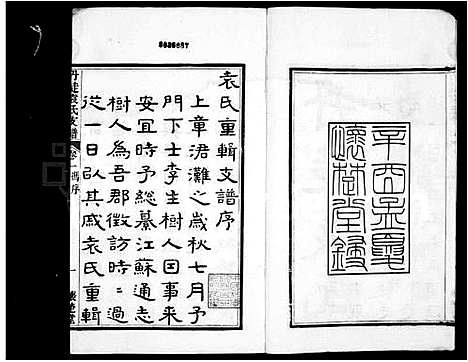 辛酉孟夏
懷楚堂鋟
袁氏重輯支譜序
上章涒灘之歲秋七月予
門下士李生樹人因事來
安宜時予總纂江蘇通志
樹人為吾郡徵訪時時過
從一日臥其戚袁氏重輯
丹徒袁氏支譜
卷一馮序
一